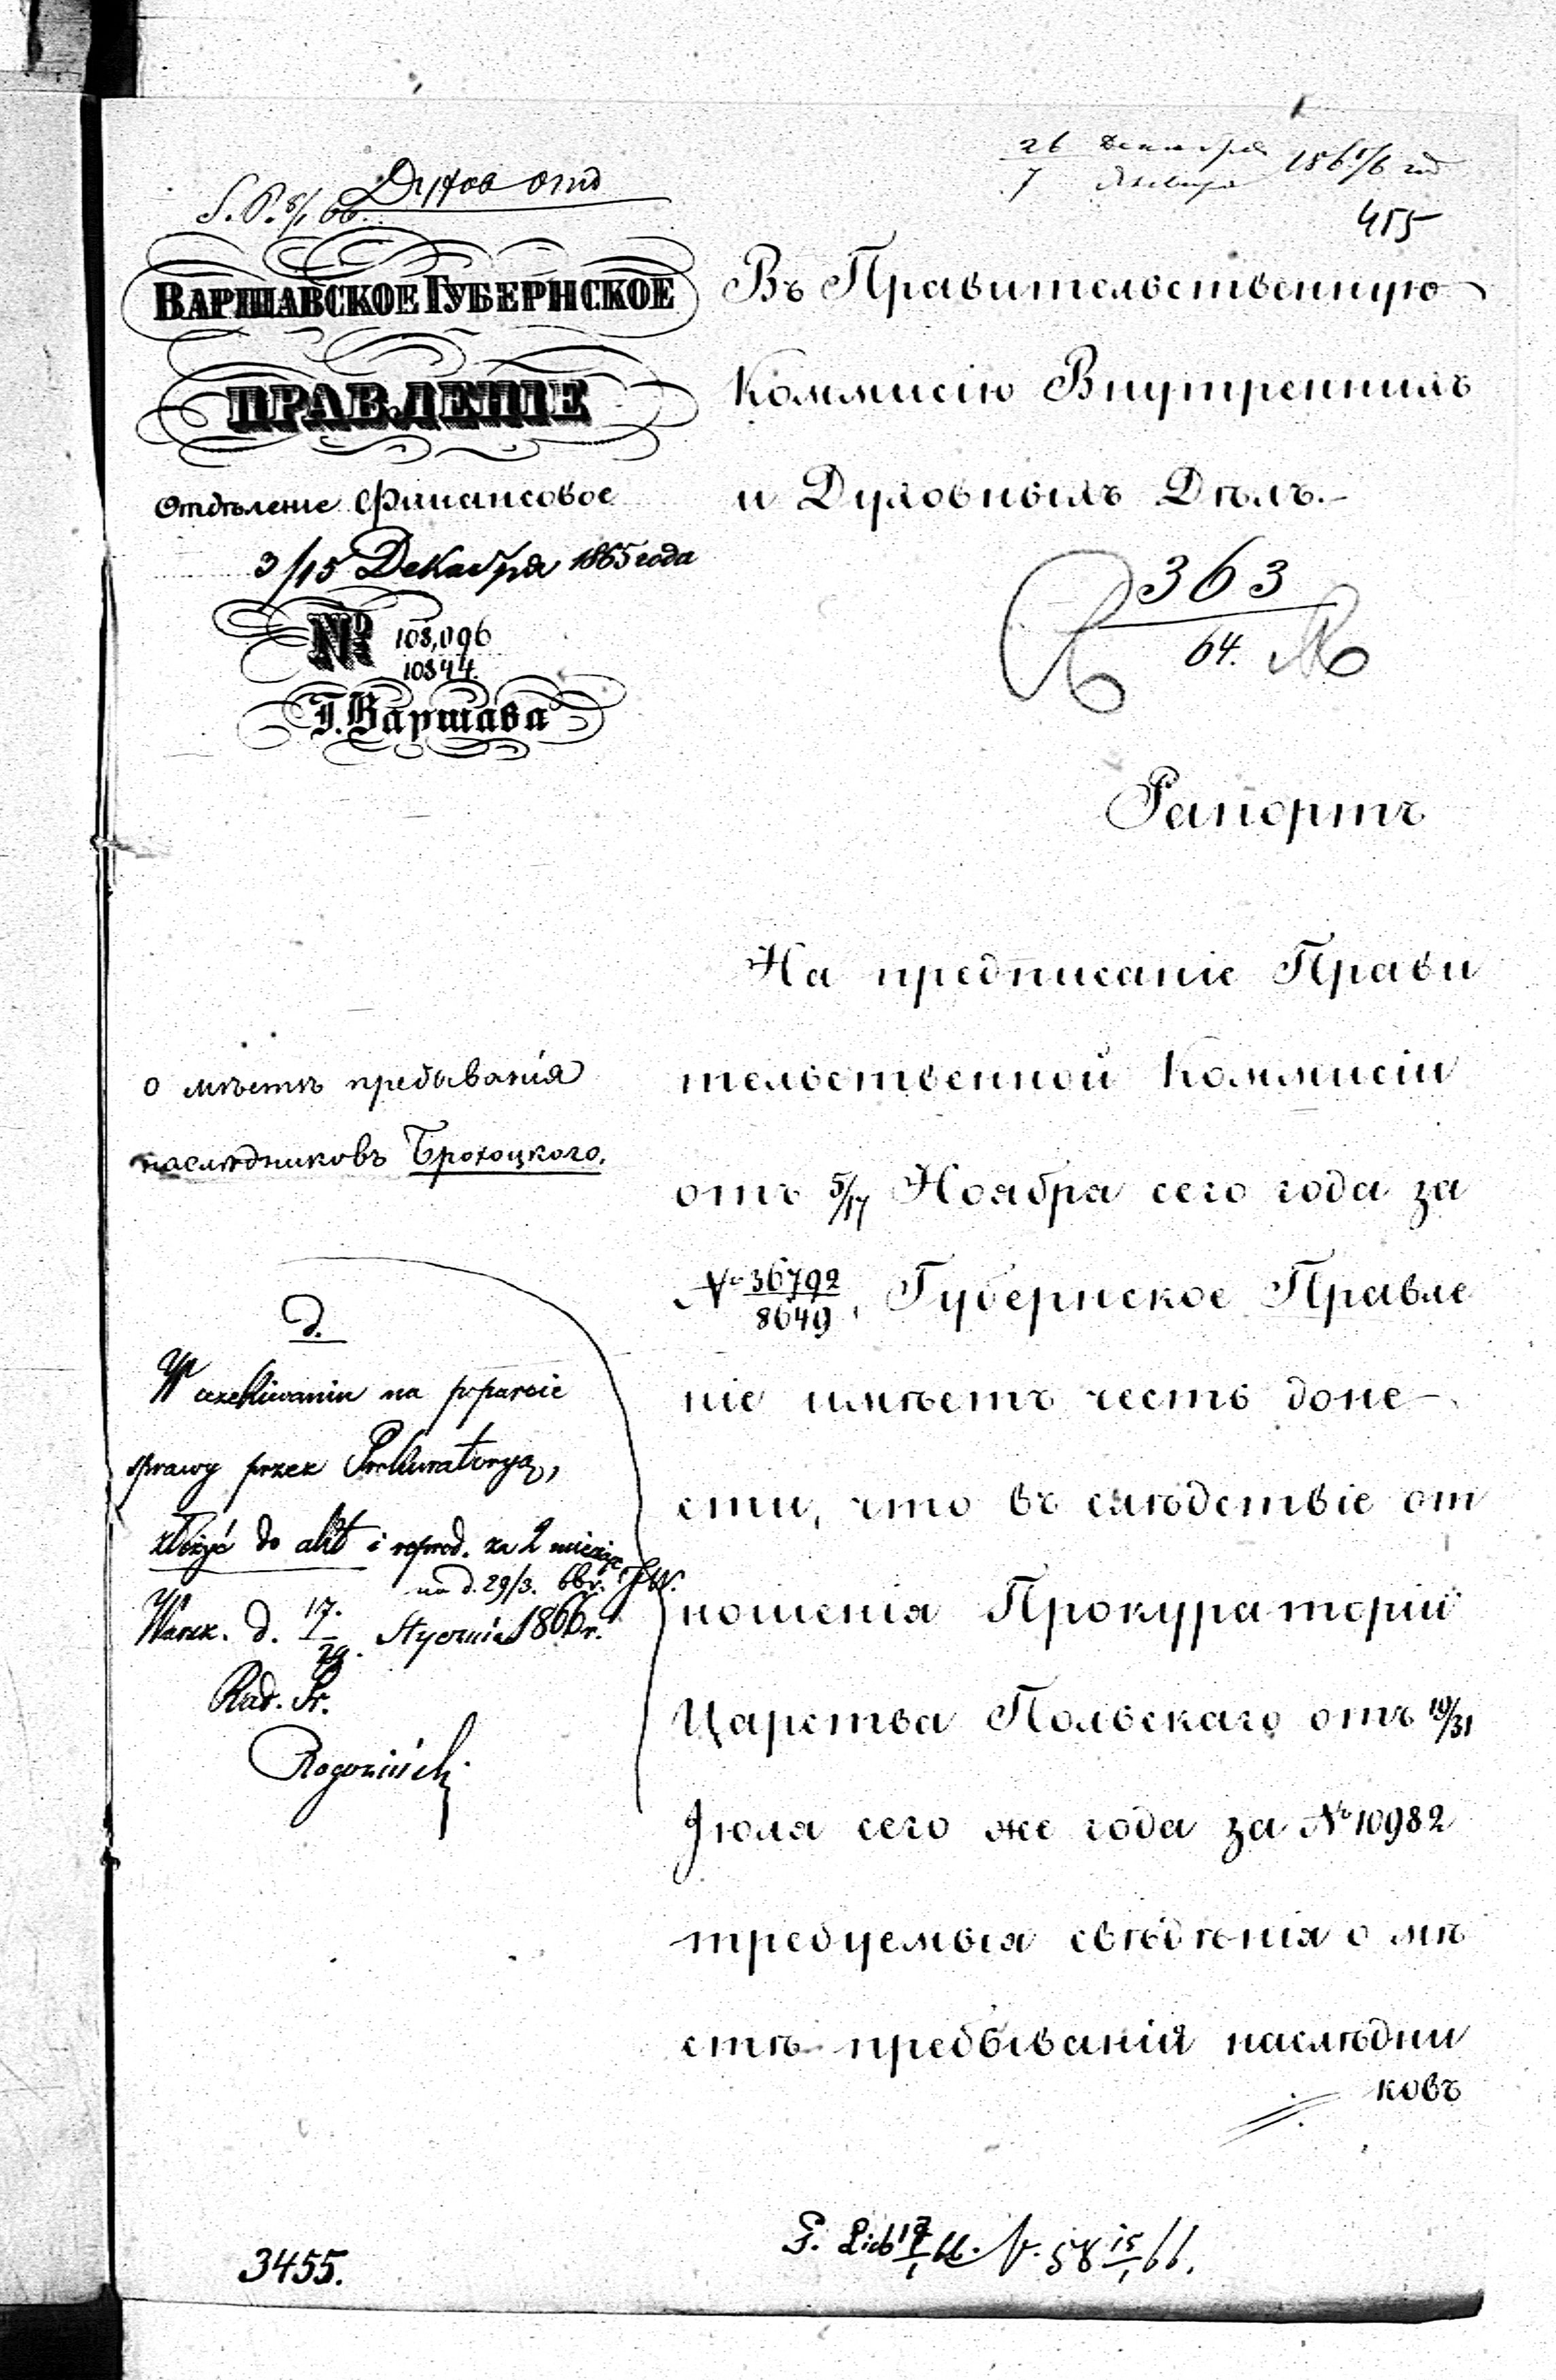 26 Декабря
7 Января 1865/6 год
455
Духов отд
S. P. 8/1 66.
ВАРШАВСКОЕ ГУБЕРНСКОЕ
ПРАВЛЕНІЕ
Отдѣленіе Финансовое
3/15 Декабря 1865 года
№ 108,096
10844.
Г. Варшава
Въ Правительственную
Коммисію Внутреннихъ
и Духовныхъ Дѣлъ.-
363
64.
Рапортъ
о мѣстѣ пребыванія
наслѣдниковъ Брохоцкого.
На предписаніе Прави
тельственной Коммисіи
отъ 5/17 Ноября сего года за
№ 36792
8649, Губернское Правле
ніе имѣетъ честь доне-
сти, что въ слѣдствіе от
ношенія Прокураторіи
Царства Польскаго отъ 19/31
Іюля сего же года за № 10982
требуемыя свѣдѣнія о мѣ
стѣ пребыванія наслѣдни
ковъ
D.
W oczekiwaniu na poparcie
sprawy przez Prokuratoryą,
złożyć do akt i reprod. za 2 miesiące
na d. 29/3. 66 r.
Warsz. d. 17./29. Stycznia 1866 r.
Rad. Pr.
Rogoziński
58 15/1 66.
3455.